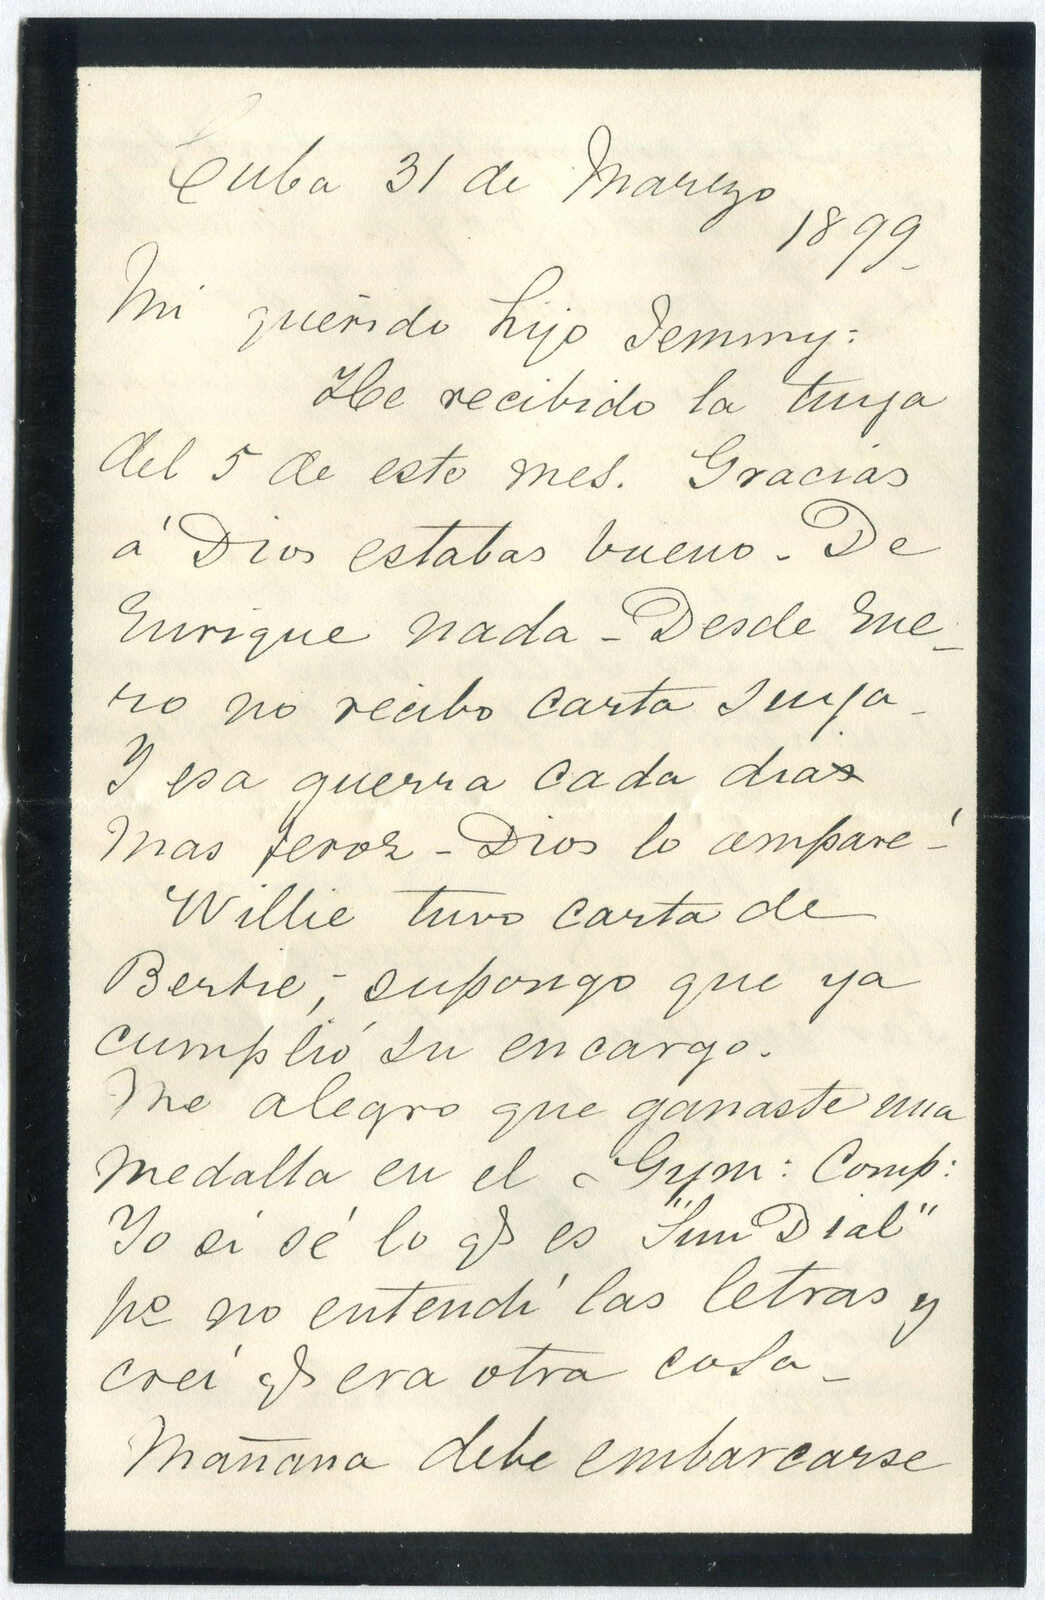 Cuba 31 de Marzo
1899_
Mi querido hijo Jemmy:
He recibido la tuya
del 5 de este mes. Gracias
á Dios estabas bueno_ De
Enrique nada_ Desde Ene_
ro no recibo carta suya_
Y esa guerra cada dia
mas feroz_ Dios lo ampare_
Willie tuvo carta de
Bertie,- supongo que ya
cumplió su encargo.
Me alegro que ganaste una
medalla en el Gym: Comp:
Yo si sé lo q̃ es "Sun Dial"
po no entendí las letras y
creí q̃ era otra cosa_
Mañana debe embarcarse